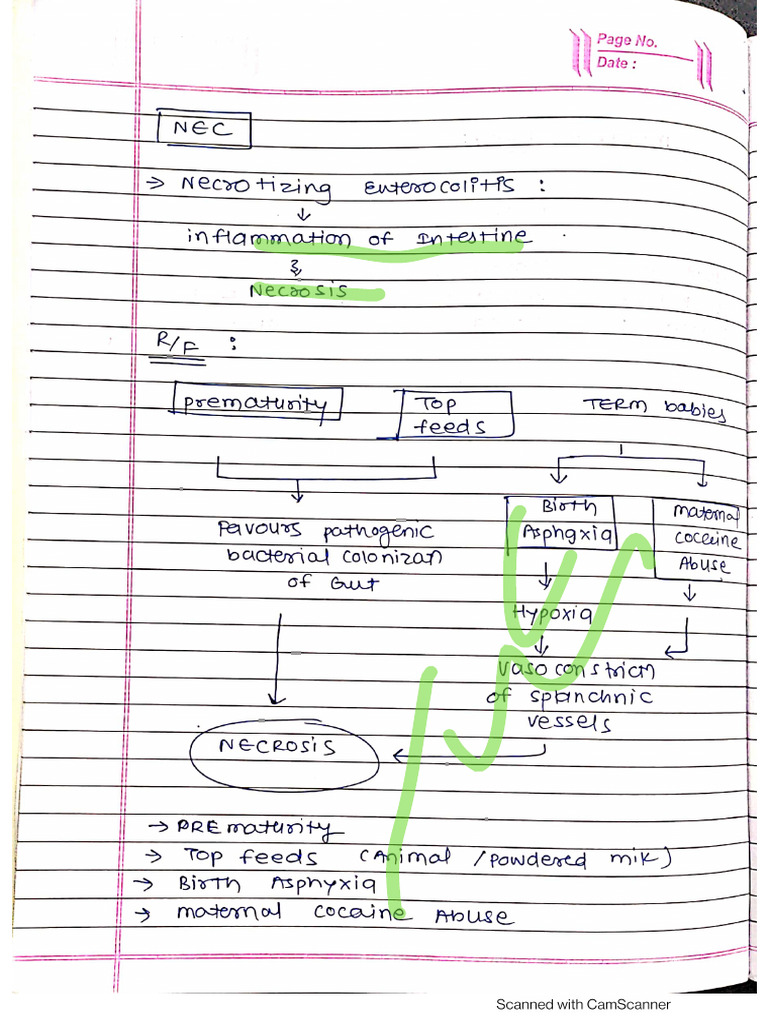 Page No.
Date :
NEC
→ Necrotizing Enterocolitis :
↓
inflammation of Intestine
&
Necrosis
R/F :
prematurity
Top feeds
TERM babies
Favours pathogenic
bacterial colonizan
of Gut
Birth
Asphyxia
maternal
cocaine
Abuse
↓
Hypoxia
↓
vasoconstricn
of splanchnic
vessels
NECROSIS
→ PREmaturity
→ Top feeds (Animal / powdered mik)
→ Birth Asphyxia
→ maternal cocaine Abuse
Scanned with CamScanner